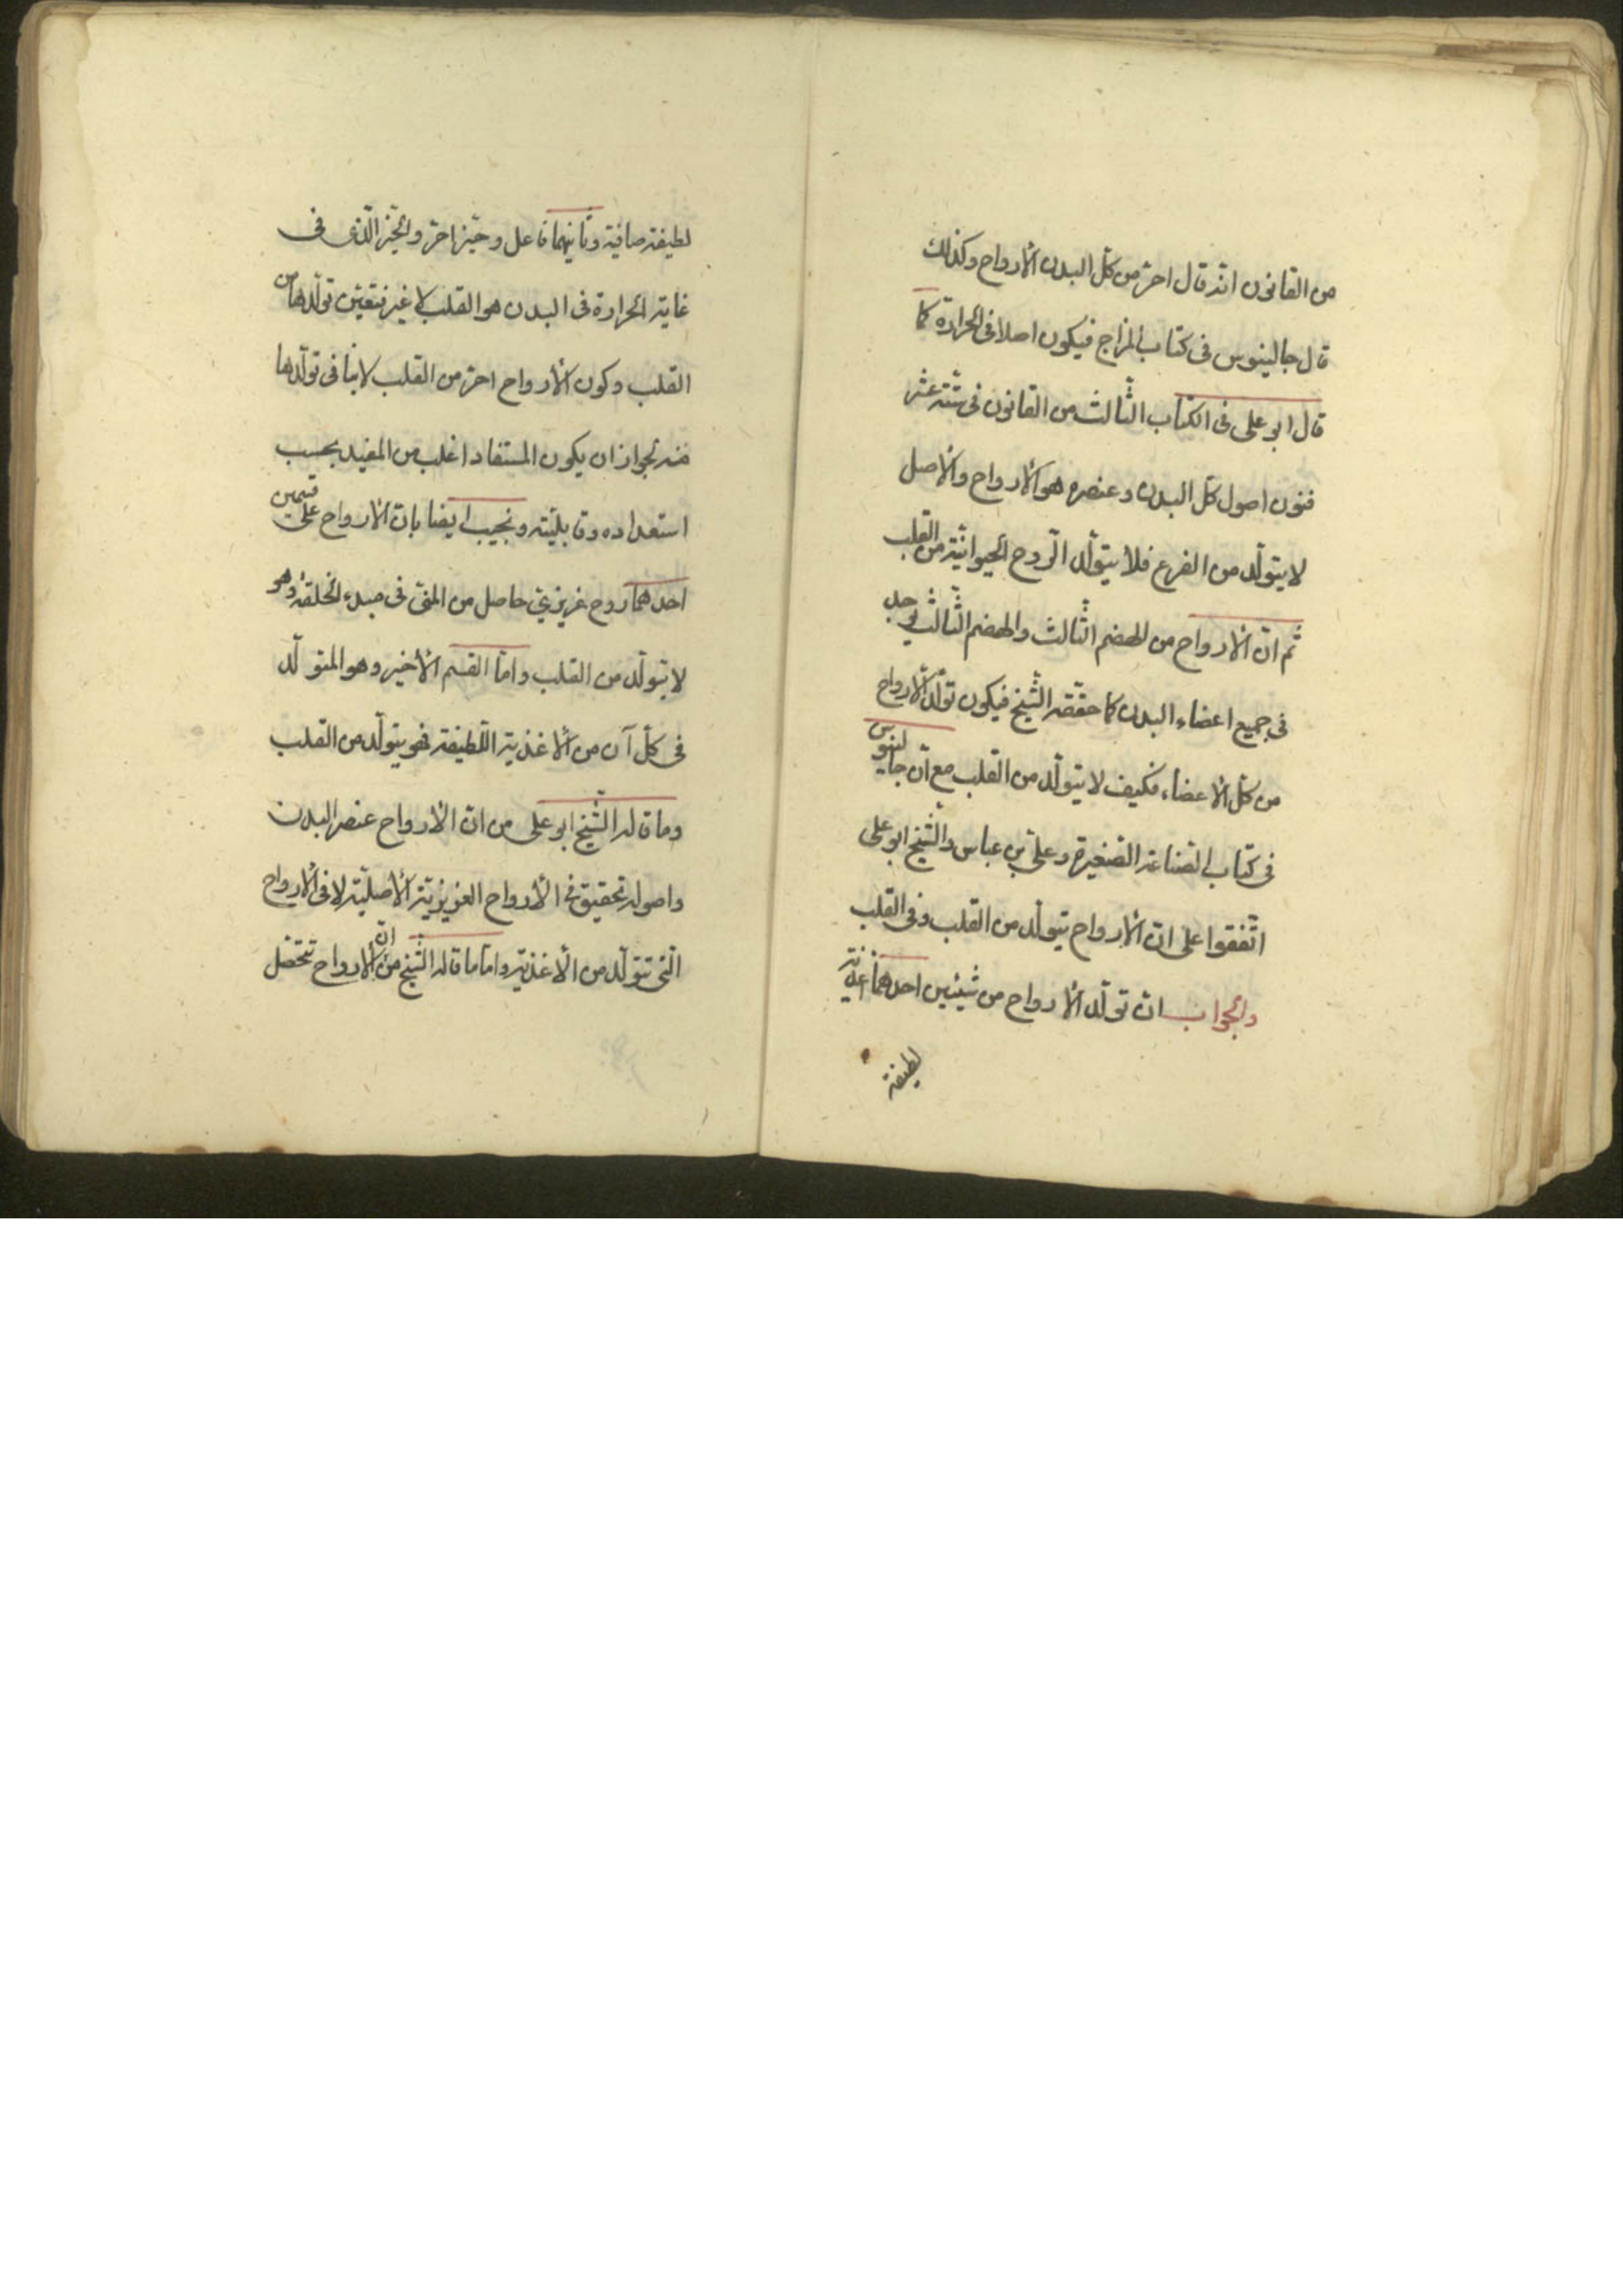 من القانون انه قال احرّ من كلّ البدن الأرواح وكذلك
قال جالينوس فى كتاب المزاج فيكون اصلا فى الحرارة كما
قال ابو على فى الكتاب الثّالث من القانون فى ستّة عشر
فنون اصول كلّ البدن وعنصره هو الأرواح والأصل
لا يتولّد من الفرع فلا يتولّد الرّوح الحيوانيّة من القلب
ثم انّ الأرواح من الهضم الثّالث والهضم الثّالث يوجد
فى جميع اعضاء البدن كما حقّقه الشّيخ فيكون تولّد الأرواح
من كلّ الأعضاء فكيف لا يتولّد من القلب مع انّ جالينوس
فى كتاب الصّناعة الصّغيرة وعلىّ بن عباس والشّيخ ابو على
اتّفقوا على انّ الأرواح يتولّد من القلب وفى القلب
والجواب انّ تولّد الأرواح من شيئين احدهما اغذية
لطيفة
لطيفة صافية وثانيهما فاعل وحيّز احرّ والحيّز الّذى فى
غاية الحرارة فى البدن هو القلب لا غير فتعيّن تولّدها من
القلب وكون الأرواح احرّ من القلب لا ينافى تولّدها
منه لجواز ان يكون المستفاد اغلب من المفيد بحسب
استعداده وقابليّته ونجيب ايضا بانّ الأرواح على قسمين
احدهما روح غريزىّ حاصل من المنىّ فى مبدء الخلقة وهو
لا يتولّد من القلب وامّا القسم الأخير وهو المتولّد
فى كلّ آن من الأغذية اللّطيفة فهو يتولّد من القلب
وما قاله الشّيخ ابو على من انّ الأرواح عنصر البدن
واصوله تحقيق فى الأرواح الغريزيّة الأصليّة لا فى الأرواح
الّتى تتولّد من الأغذية وامّا ما قاله الشّيخ من انّ الأرواح تتحصّل